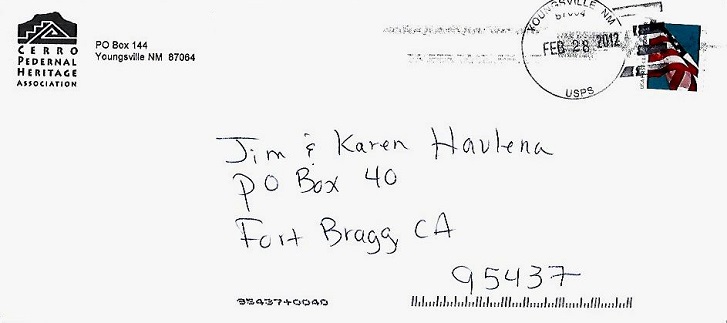 CERRO
PEDERNAL
HERITAGE
ASSOCIATION
PO Box 144
Youngsville NM 87064
YOUNGSVILLE NM
87064
FEB 28 2012
USPS
Jim & Karen Havlena
PO Box 40
Fort Bragg, CA
95437
95437+0040